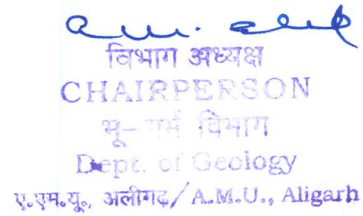 विभाग अध्यक्ष
CHAIRPERSON
भू-गर्भ विभाग
Dept. of Geology
ए.एम.यू., अलीगढ़/A.M.U., Aligarh